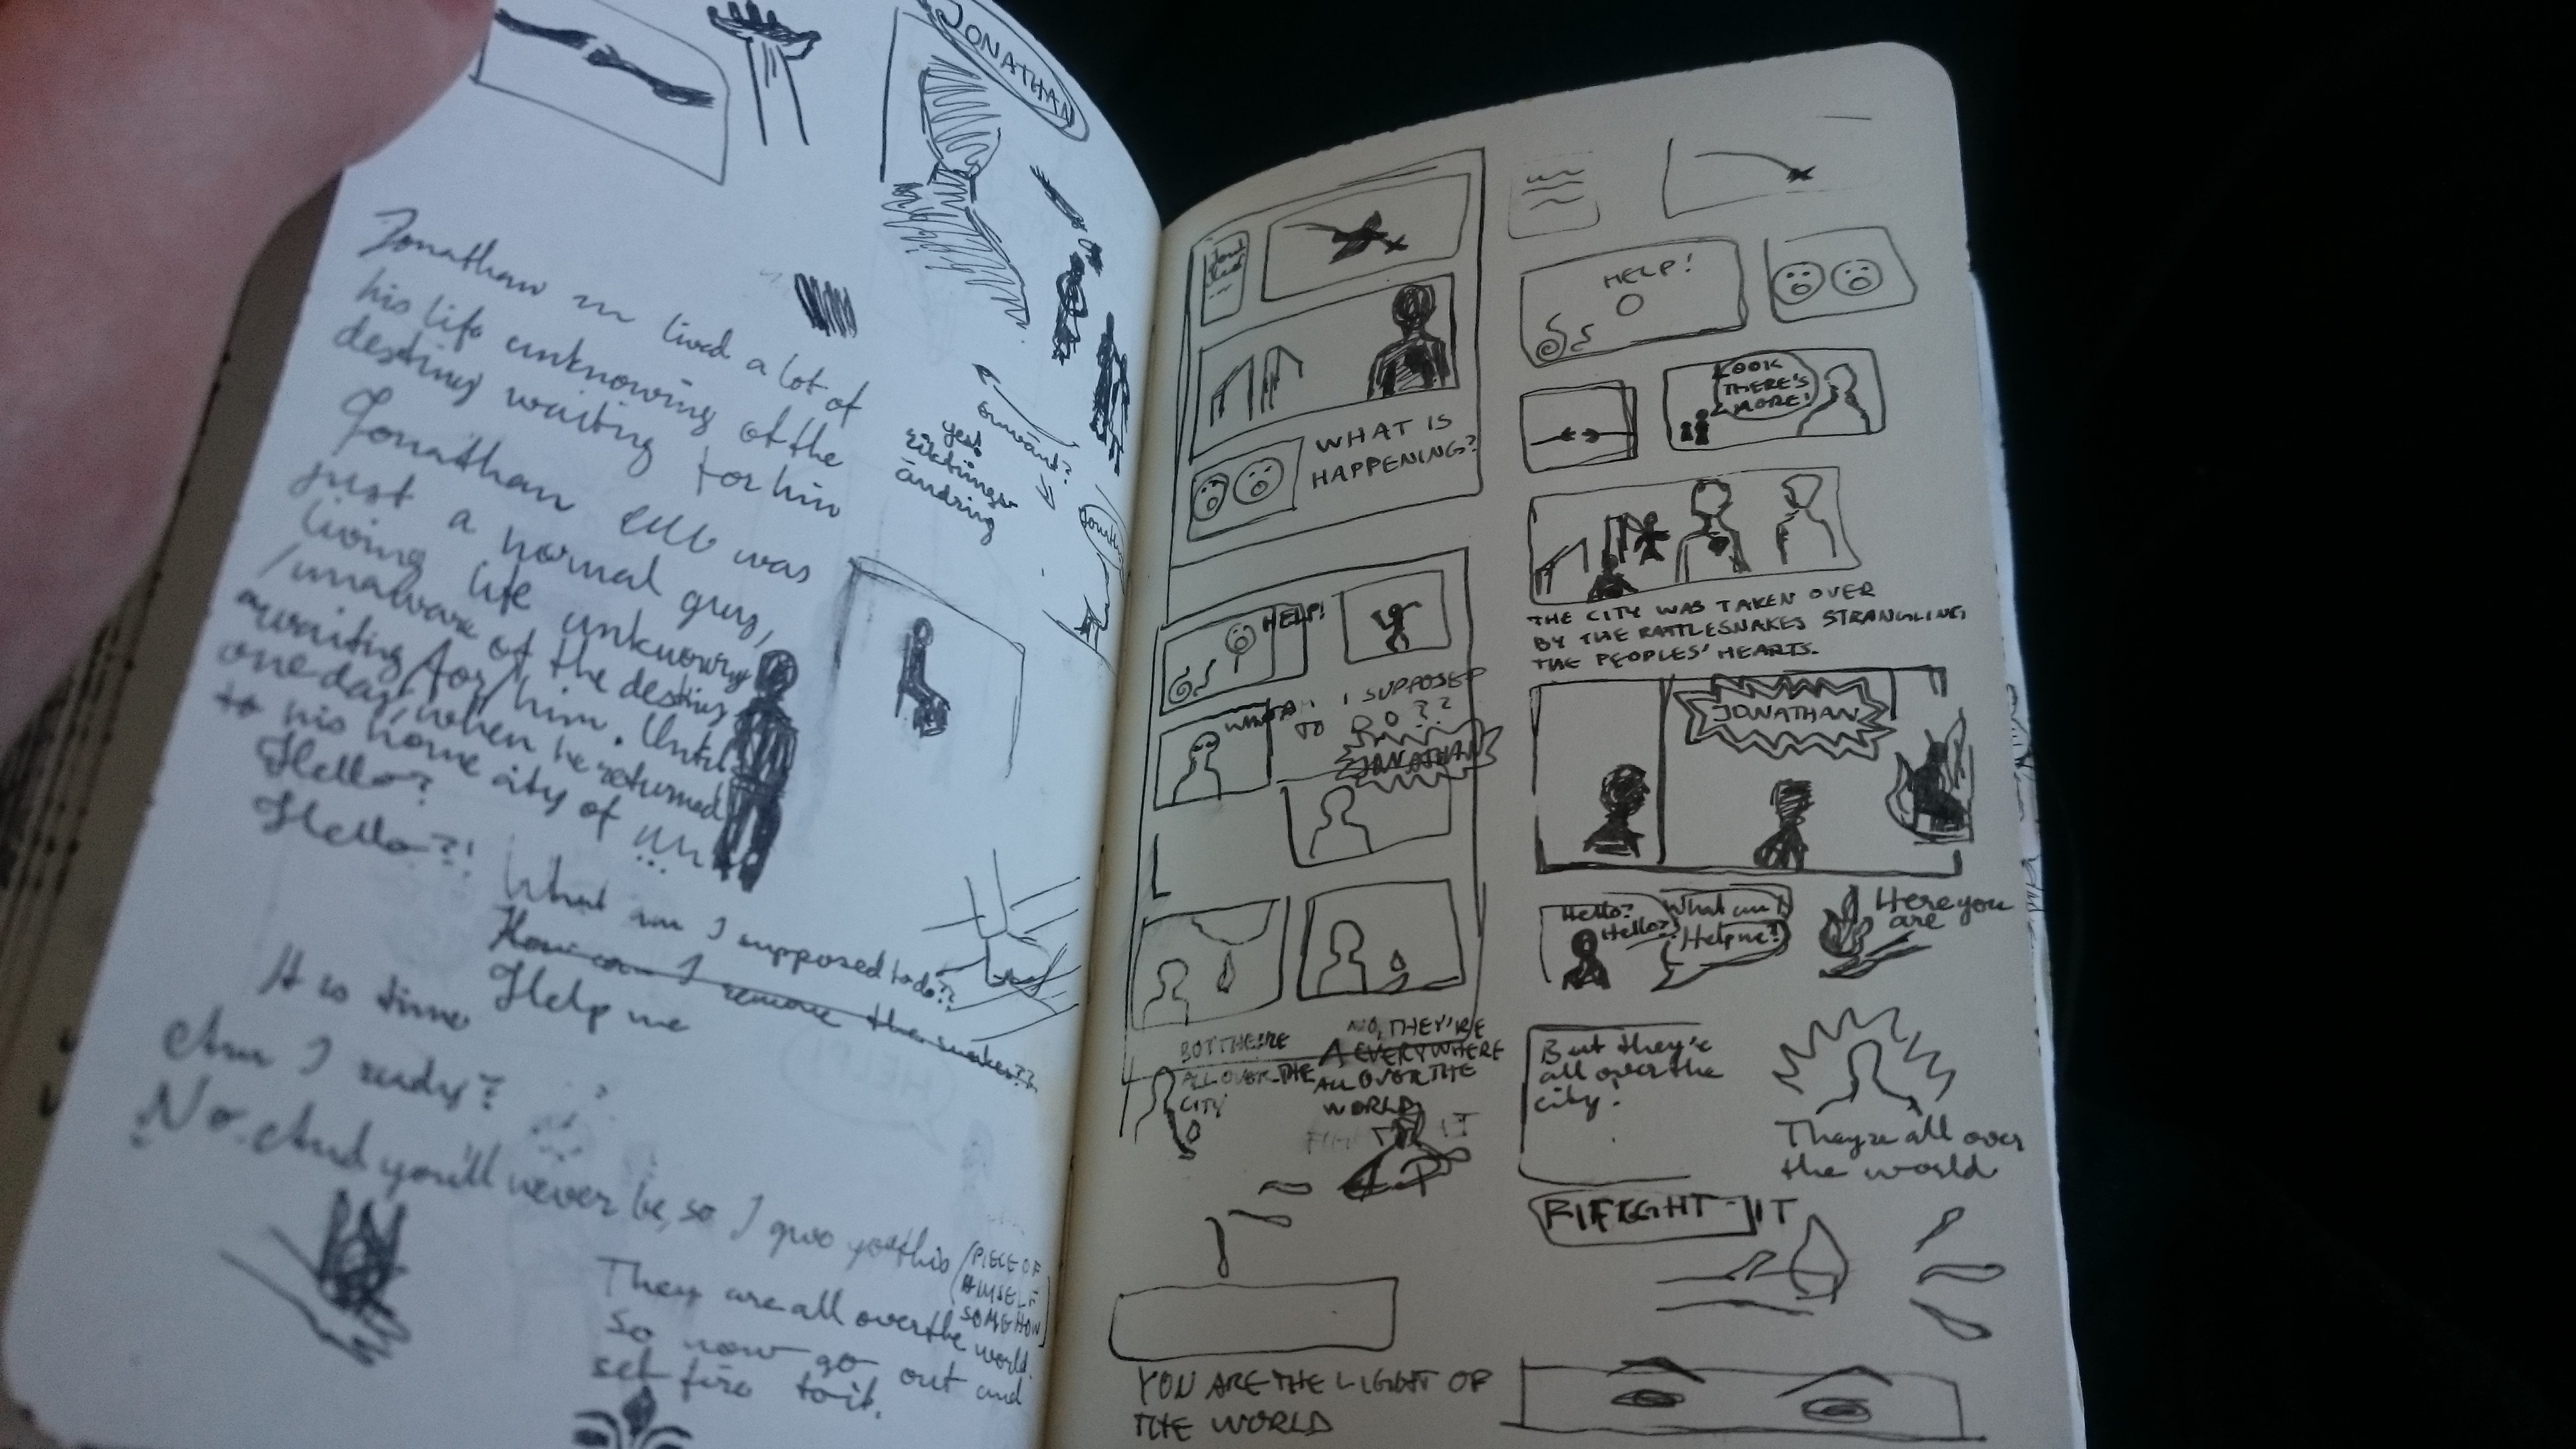 JONATHAN
Jonathan lived a lot of
his life unknowing of the
destiny waiting for him
Jonathan was
just a normal guy,
living life unknowing
/unaware of the destiny
awaiting /for/ him. Until
one day, when he returned
to his home city of
Hello?
Hello?!
What am I supposed to do??
How can I remove the snakes??
Help me
It is time
Am I ready?
No. And you'll never be, so I give you this
[PIECE OF
HIMSELF
SOMEHOW]
They are all over the world.
So now go out and
set fire to it.
omvänt?
yes
riktnings-
ändring
Jonathan
WHAT IS
HAPPENING?
HELP!
WHAT AM I SUPPOSED
TO DO??
JONATHAN
BUT THEY'RE
ALL OVER THE
CITY
NO, THEY'RE
EVERYWHERE
ALL OVER THE
WORLD
YOU ARE THE LIGHT OF
THE WORLD
HELP!
LOOK
THERE'S
MORE!
THE CITY WAS TAKEN OVER
BY THE RATTLESNAKES STRANGLING
THE PEOPLES' HEARTS.
JONATHAN
Hello?
Hello?
What am I
Help me?
Here you
are
But they're
all over the
city!
They're all over
the world
FIGHT IT